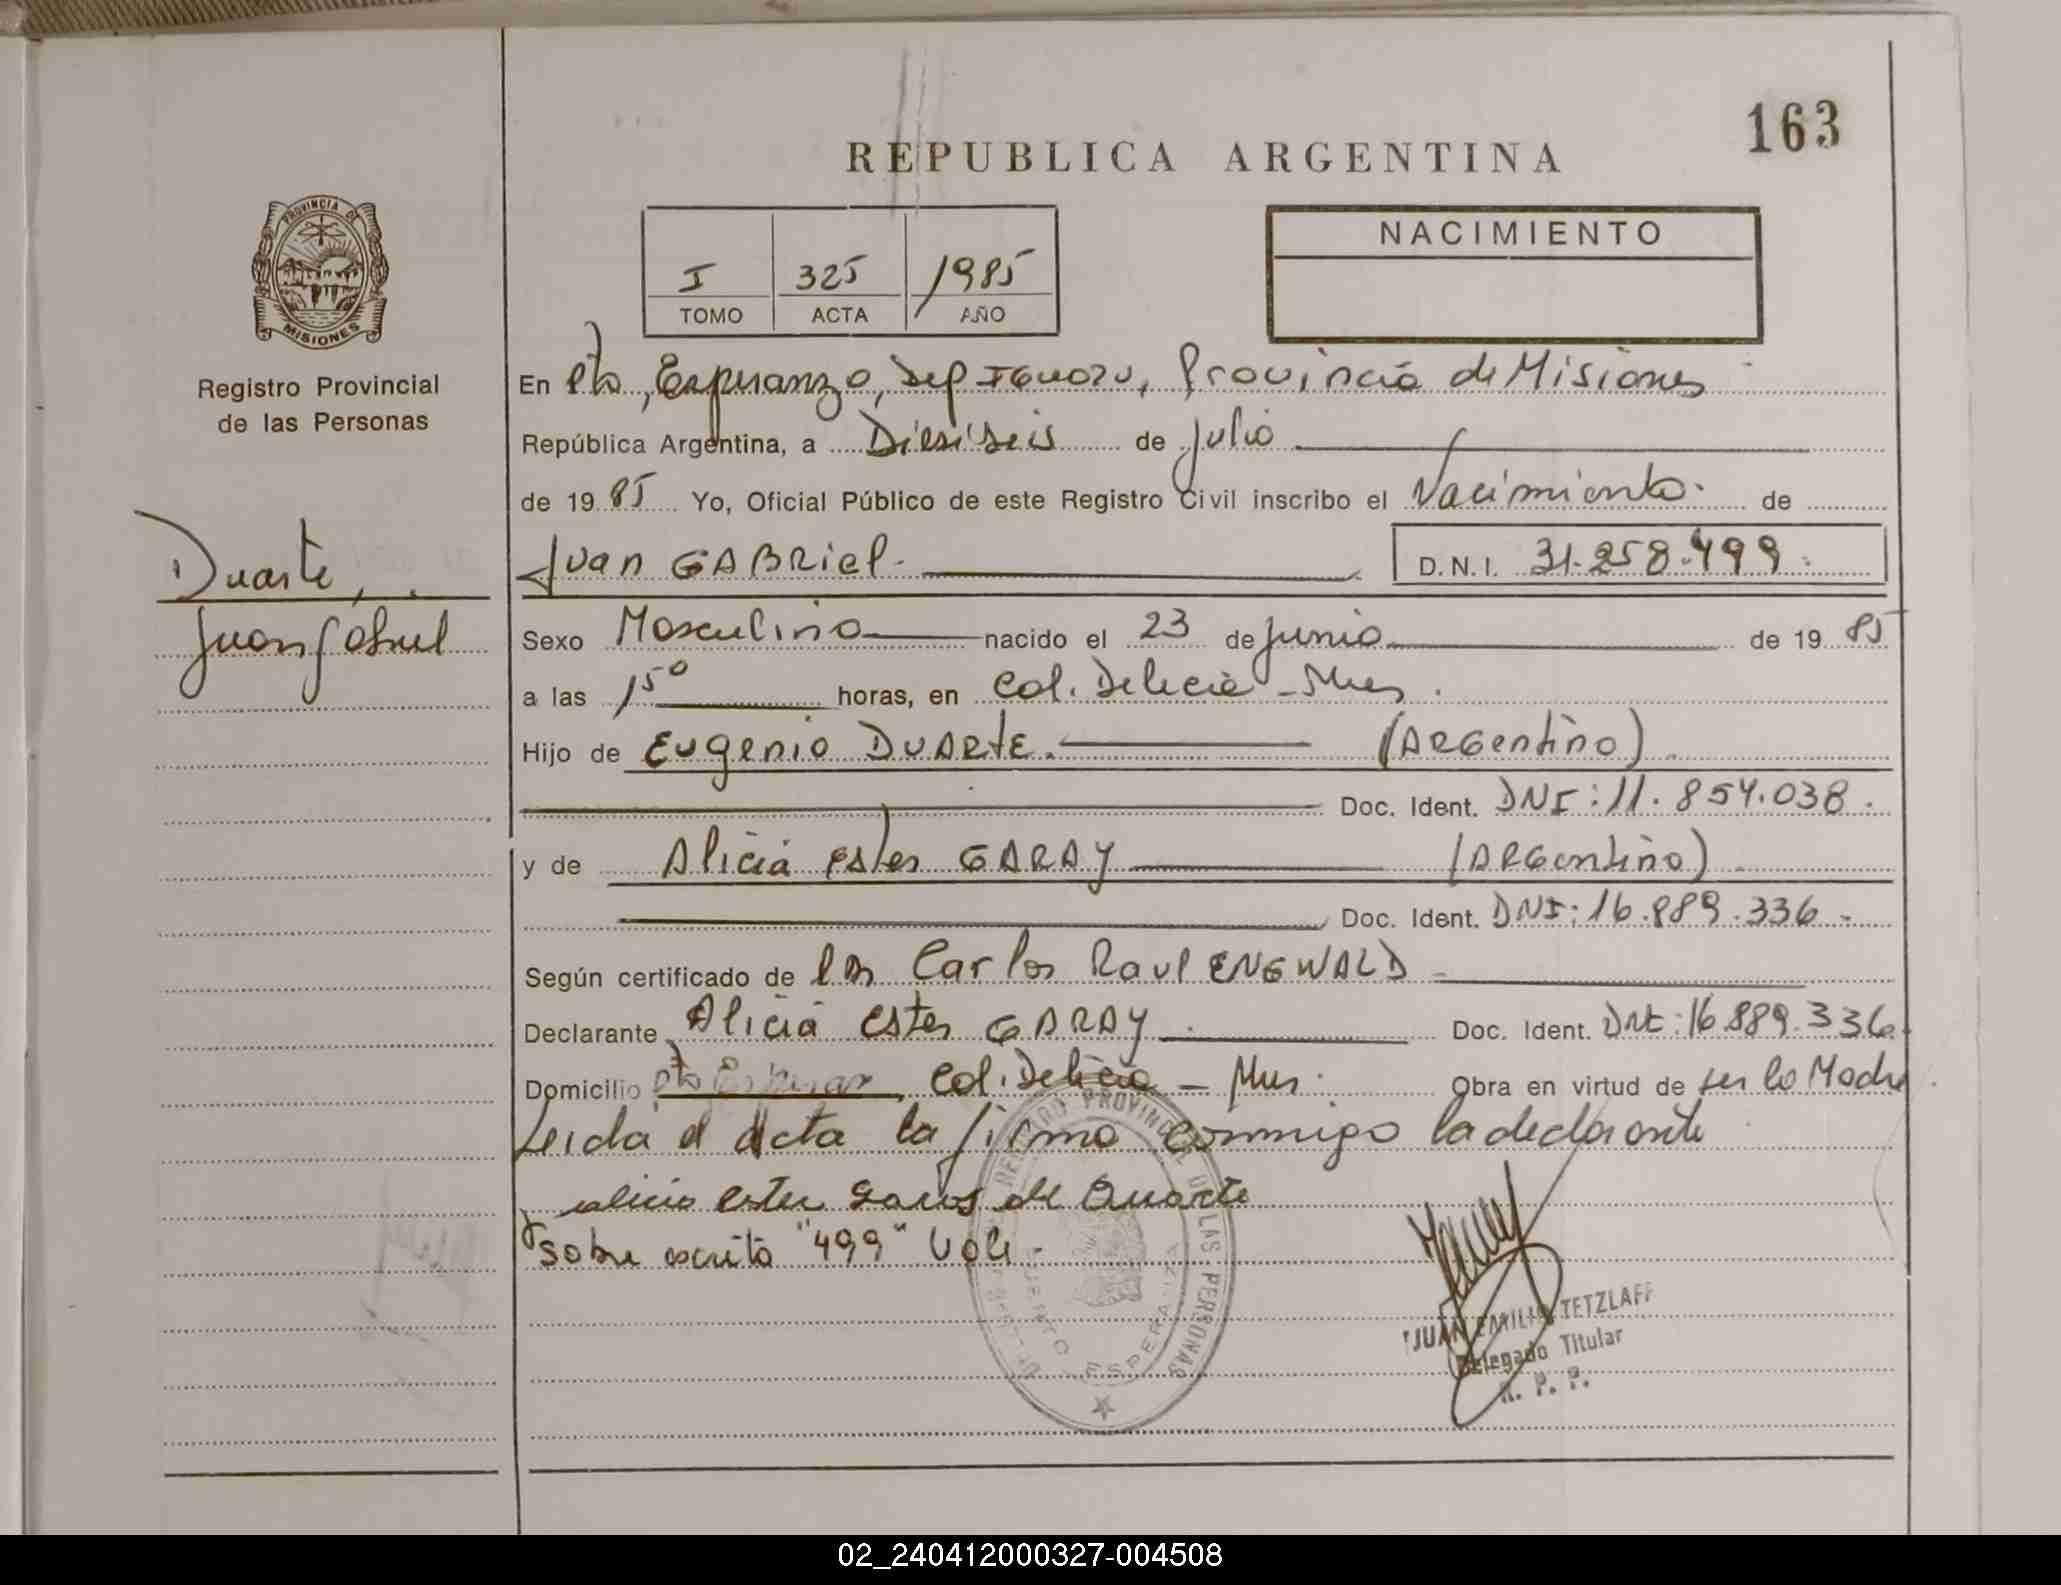 163
REPUBLICA ARGENTINA
PROVINCIA DE
MISIONES
Registro Provincial
de las Personas
Duarte,
Juan Gabriel
I 325 1985
TOMO ACTA AÑO
NACIMIENTO
En Pto, Esperanza, Dep Iguazu, Provincia de Misiones
República Argentina, a Dieciseis de Julio
de 19 85 Yo, Oficial Público de este Registro Civil inscribo el Nacimiento de
Juan GABRiel. D.N.I. 31.258.499
Sexo Masculino nacido el 23 de Junio de 19 85
a las 15º horas, en Col. Delicia - Mnes.
Hijo de Eugenio DUARTE. (ARGentino)
Doc. Ident. DNI: 11.854.038.
y de Alicia Ester GARAY (ARGentino)
Doc. Ident. DNI: 16.889.336
Según certificado de Carlos Raul ENGWALD
Declarante Alicia Ester GARAY Doc. Ident. DNI: 16.889.336
Domicilio Col. Delicia - Mnes. Obra en virtud de ser la Madre
Leida el acta la firma conmigo la declarante
alicia ester Garay de Duarte
sobre escrito "499" Vale.
REGISTRO PROVINCIAL DE LAS PERSONAS
ESPERANZA
JUAN EMILIO TETZLAFF
Delegado Titular
R. P. P.
02_240412000327-004508